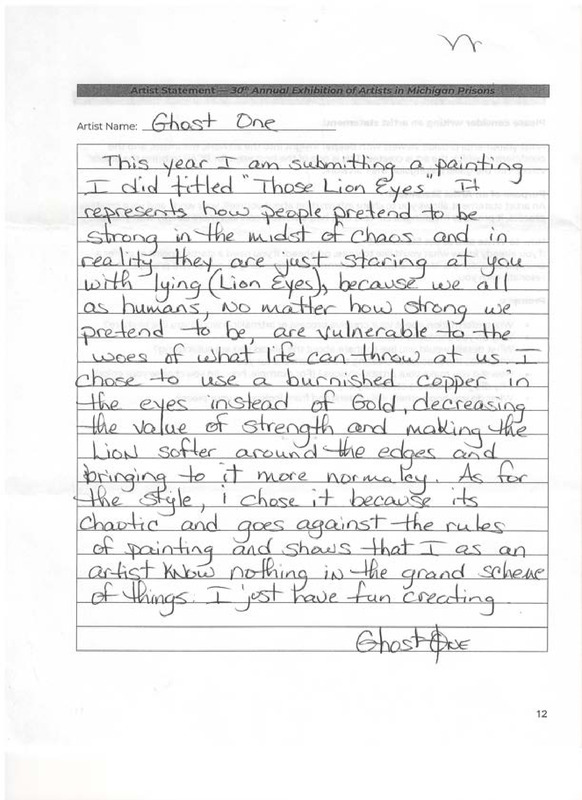 Artist Statement — 30th Annual Exhibition of Artists in Michigan Prisons
Artist Name: Ghost One
This year I am submitting a painting
I did titled "Those Lion Eyes". It
represents how people pretend to be
strong in the midst of chaos and in
reality they are just staring at you
with lying (Lion Eyes), because we all
as humans, no matter how strong we
pretend to be, are vulnerable to the
woes of what life can throw at us. I
chose to use a burnished copper in
the eyes instead of Gold, decreasing
the value of strength and making the
Lion softer around the edges and
bringing to it more normalcy. As for
the style, i chose it because its
chaotic and goes against the rules
of painting and shows that I as an
artist know nothing in the grand scheme
of things. I just have fun creating.
Ghost One
12